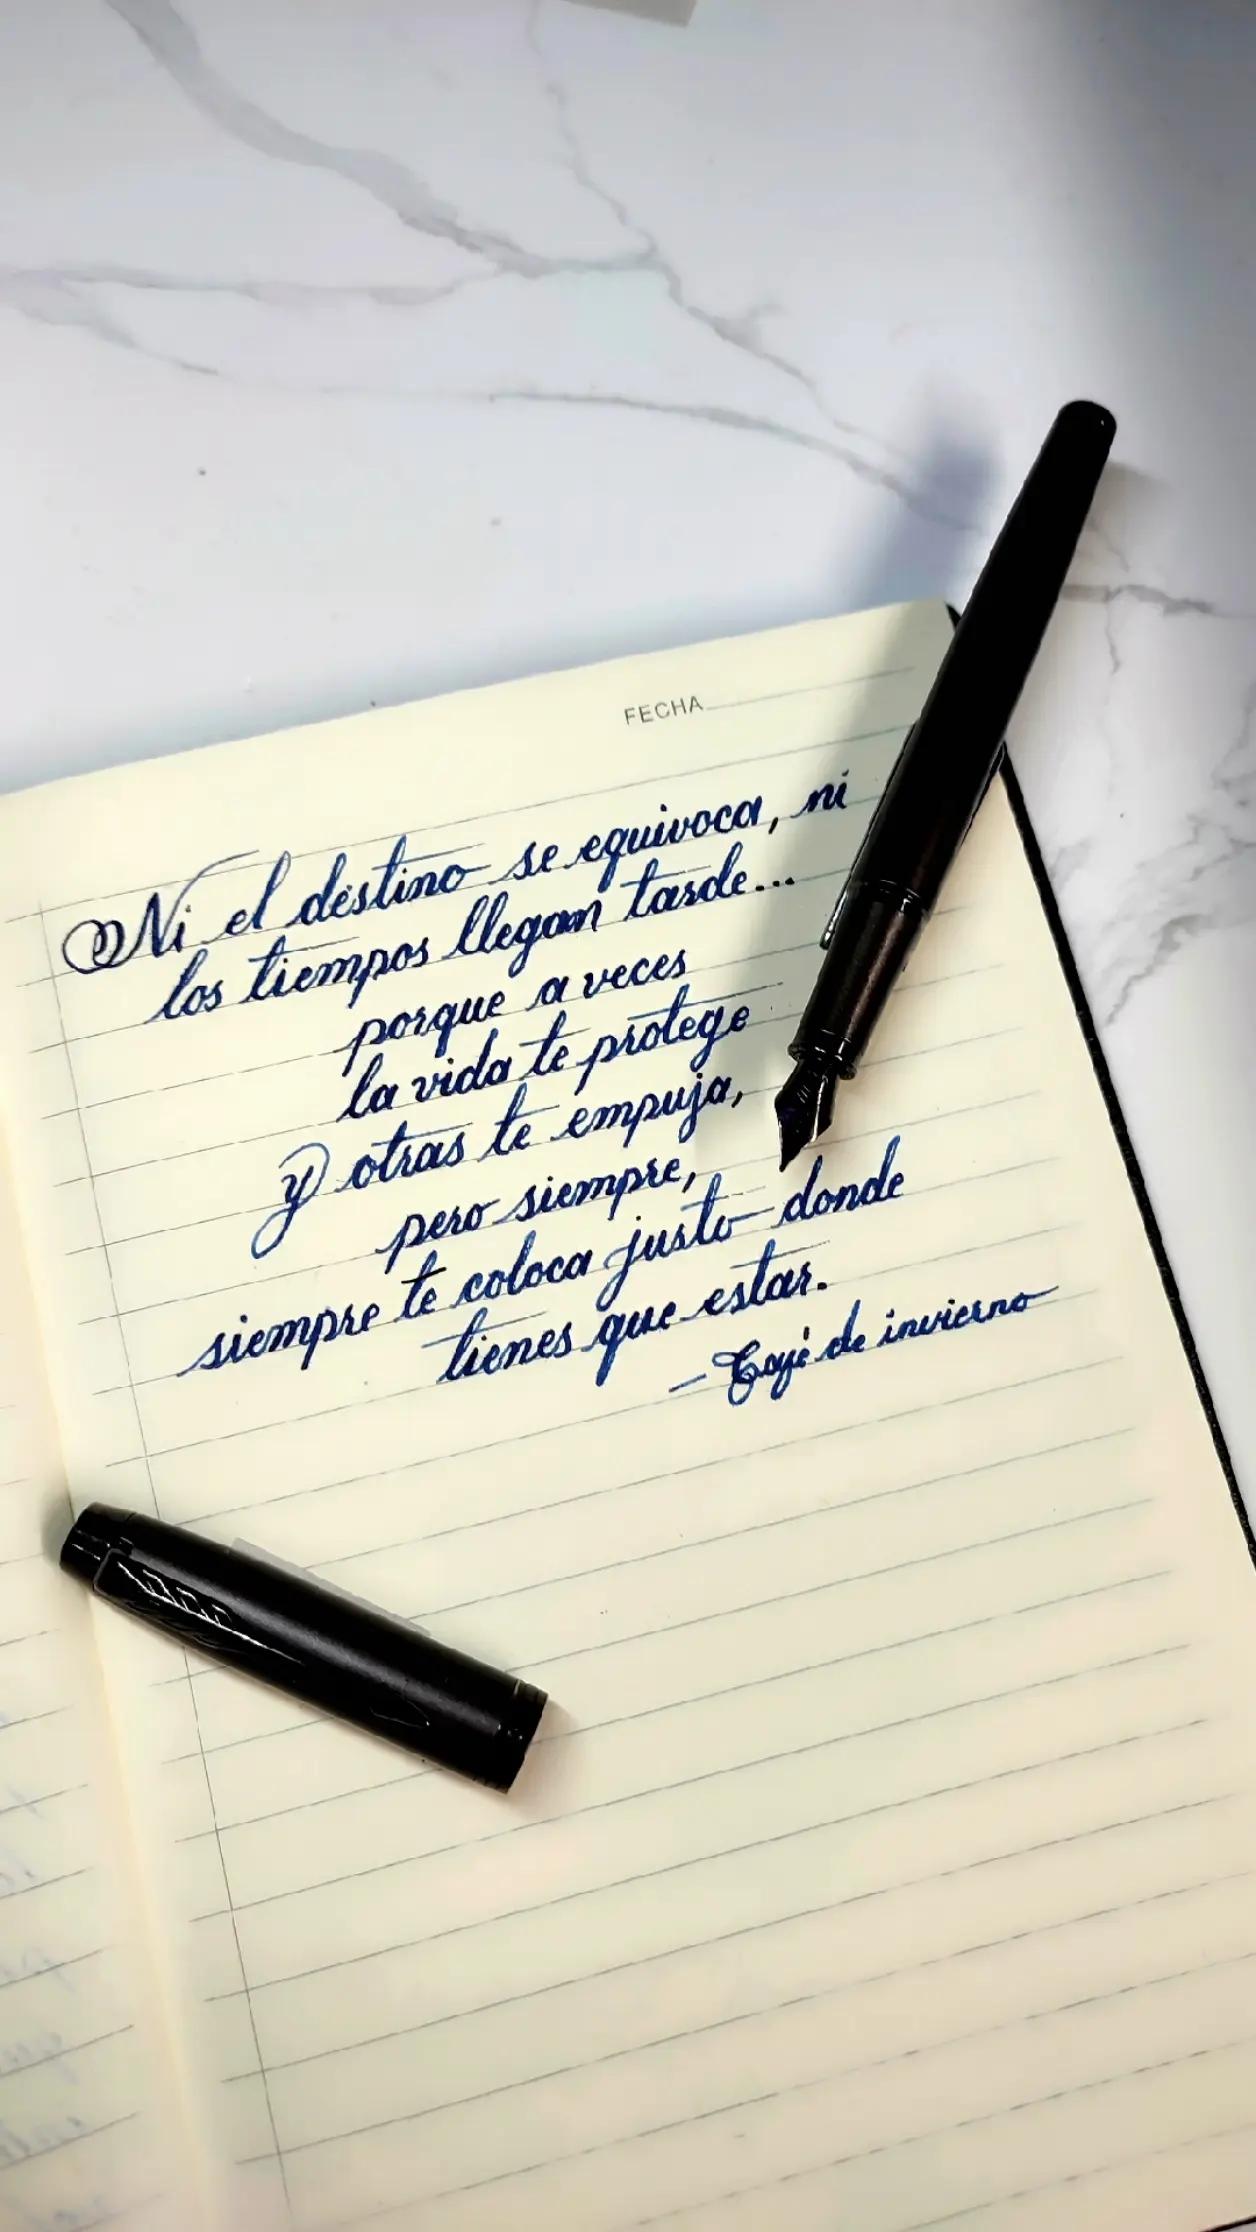 FECHA
Ni el destino se equivoca, ni
los tiempos llegan tarde...
porque a veces
la vida te protege
y otras te empuja,
pero siempre,
siempre te coloca justo donde
tienes que estar.
— Cayé de invierno